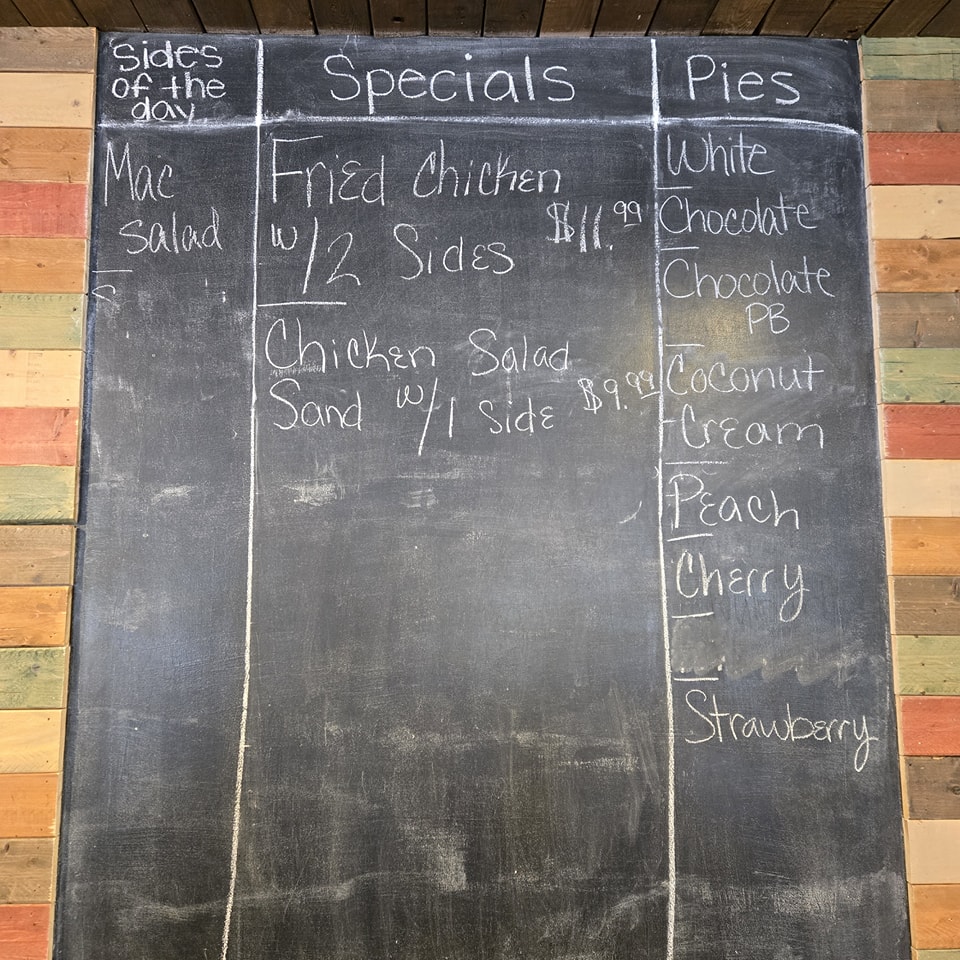 Sides
of the
day
Mac
Salad
Specials
Fried Chicken
w/2 Sides $11.99
Chicken Salad
Sand w/1 Side $9.99
Pies
White
Chocolate
Chocolate
PB
Coconut
Cream
Peach
Cherry
Strawberry